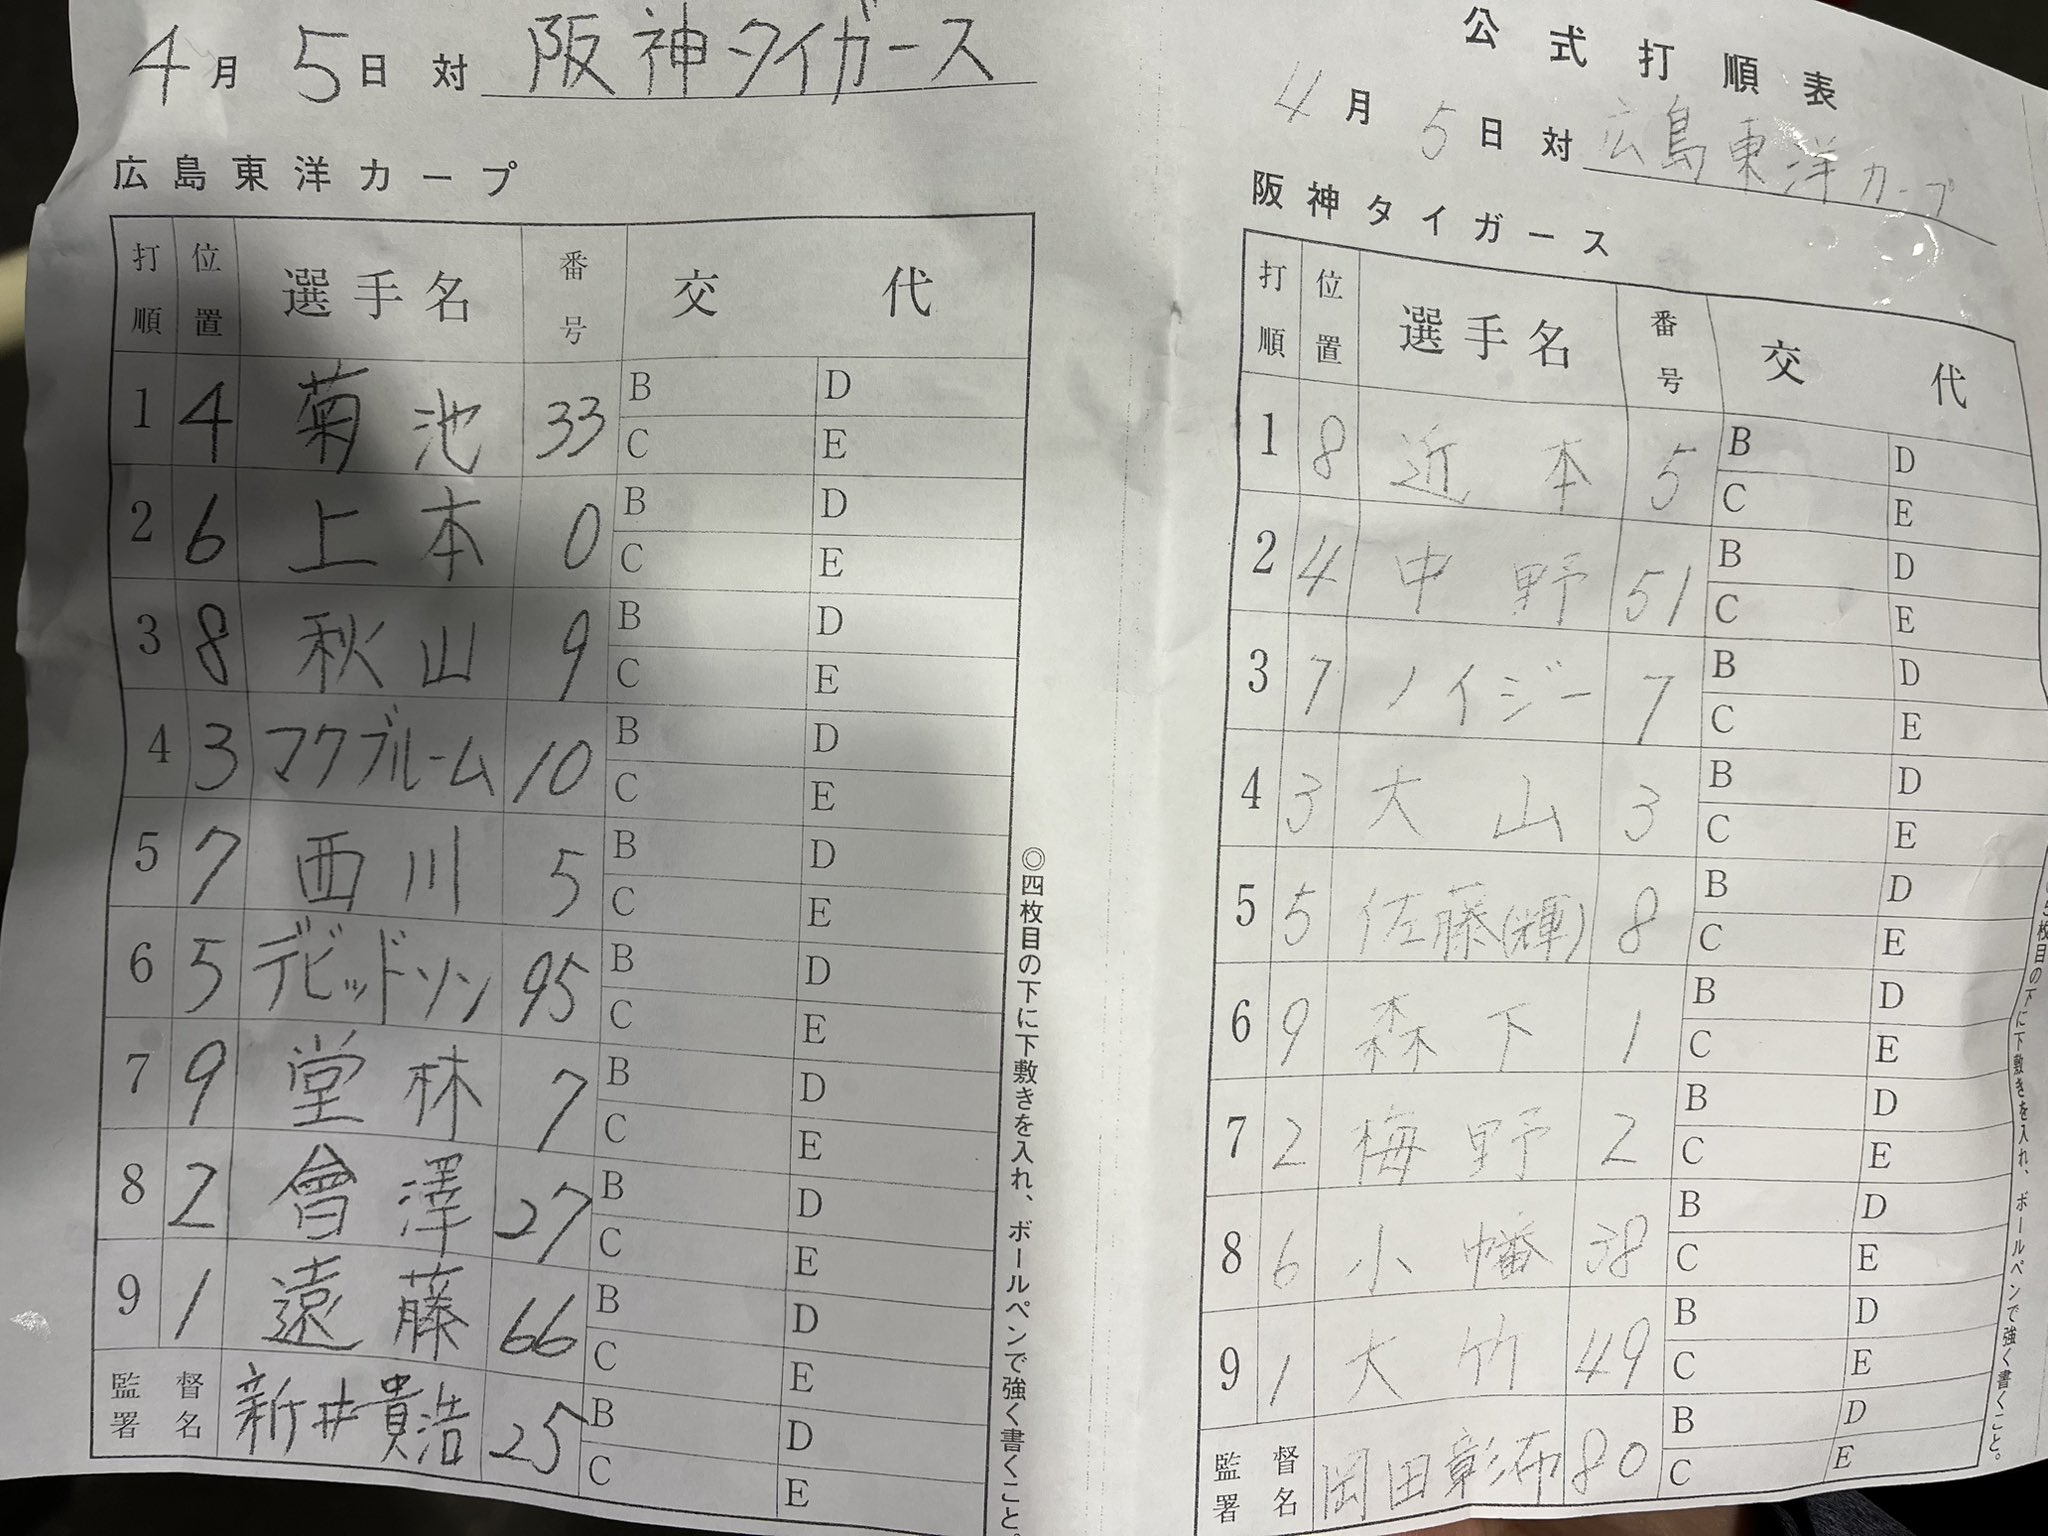 4月5日対 阪神タイガース
広島東洋カープ
打順 位置 選手名 番号 交代
1 4 菊池 33 B D
C E
2 6 上本 0 B D
C E
3 8 秋山 9 B D
C E
4 3 マクブルーム 10 B D
C E
5 7 西川 5 B D
C E
6 5 デビッドソン 95 B D
C E
7 9 堂林 7 B D
C E
8 2 會澤 27 B D
C E
9 1 遠藤 66 B D
C E
監督署名 新井貴浩 25 B D
C E
◎四枚目の下に下敷きを入れ、ボールペンで強く書くこと。
公式打順表
4月5日対 広島東洋カープ
阪神タイガース
打順 位置 選手名 番号 交代
1 8 近本 5 B D
C E
2 4 中野 51 B D
C E
3 7 ノイジー 7 B D
C E
4 3 大山 3 B D
C E
5 5 佐藤(輝) 8 B D
C E
6 9 森下 1 B D
C E
7 2 梅野 2 B D
C E
8 6 小幡 38 B D
C E
9 1 大竹 49 B D
C E
監督署名 岡田彰布 80 B D
C E
枚目の下に下敷きを入れ、ボールペンで強く書くこと。